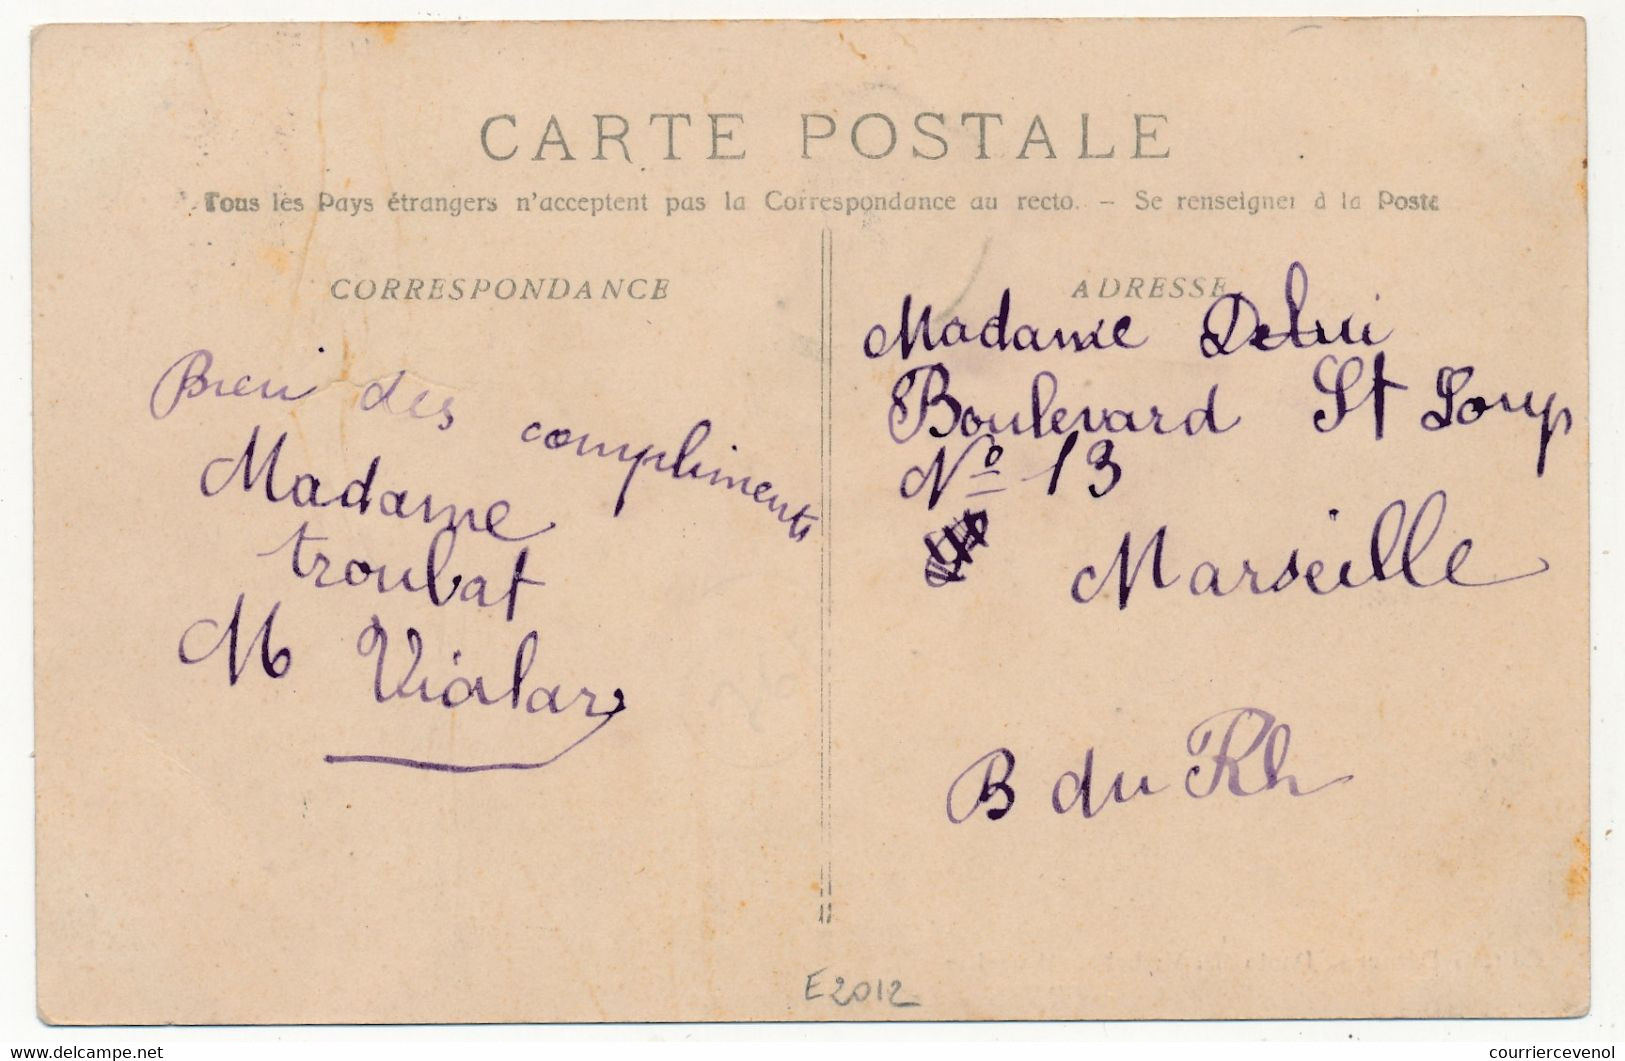 CARTE POSTALE
Tous les Pays étrangers n'acceptent pas la Correspondance au recto. - Se renseigner à la Poste
CORRESPONDANCE
Bien des compliments
Madame
troubat
M Vialar
ADRESSE
Madame Delui
Boulevard St Loup
Nº 13
Marseille
B du Rh
E2012
www.delcampe.net
courriercevenol